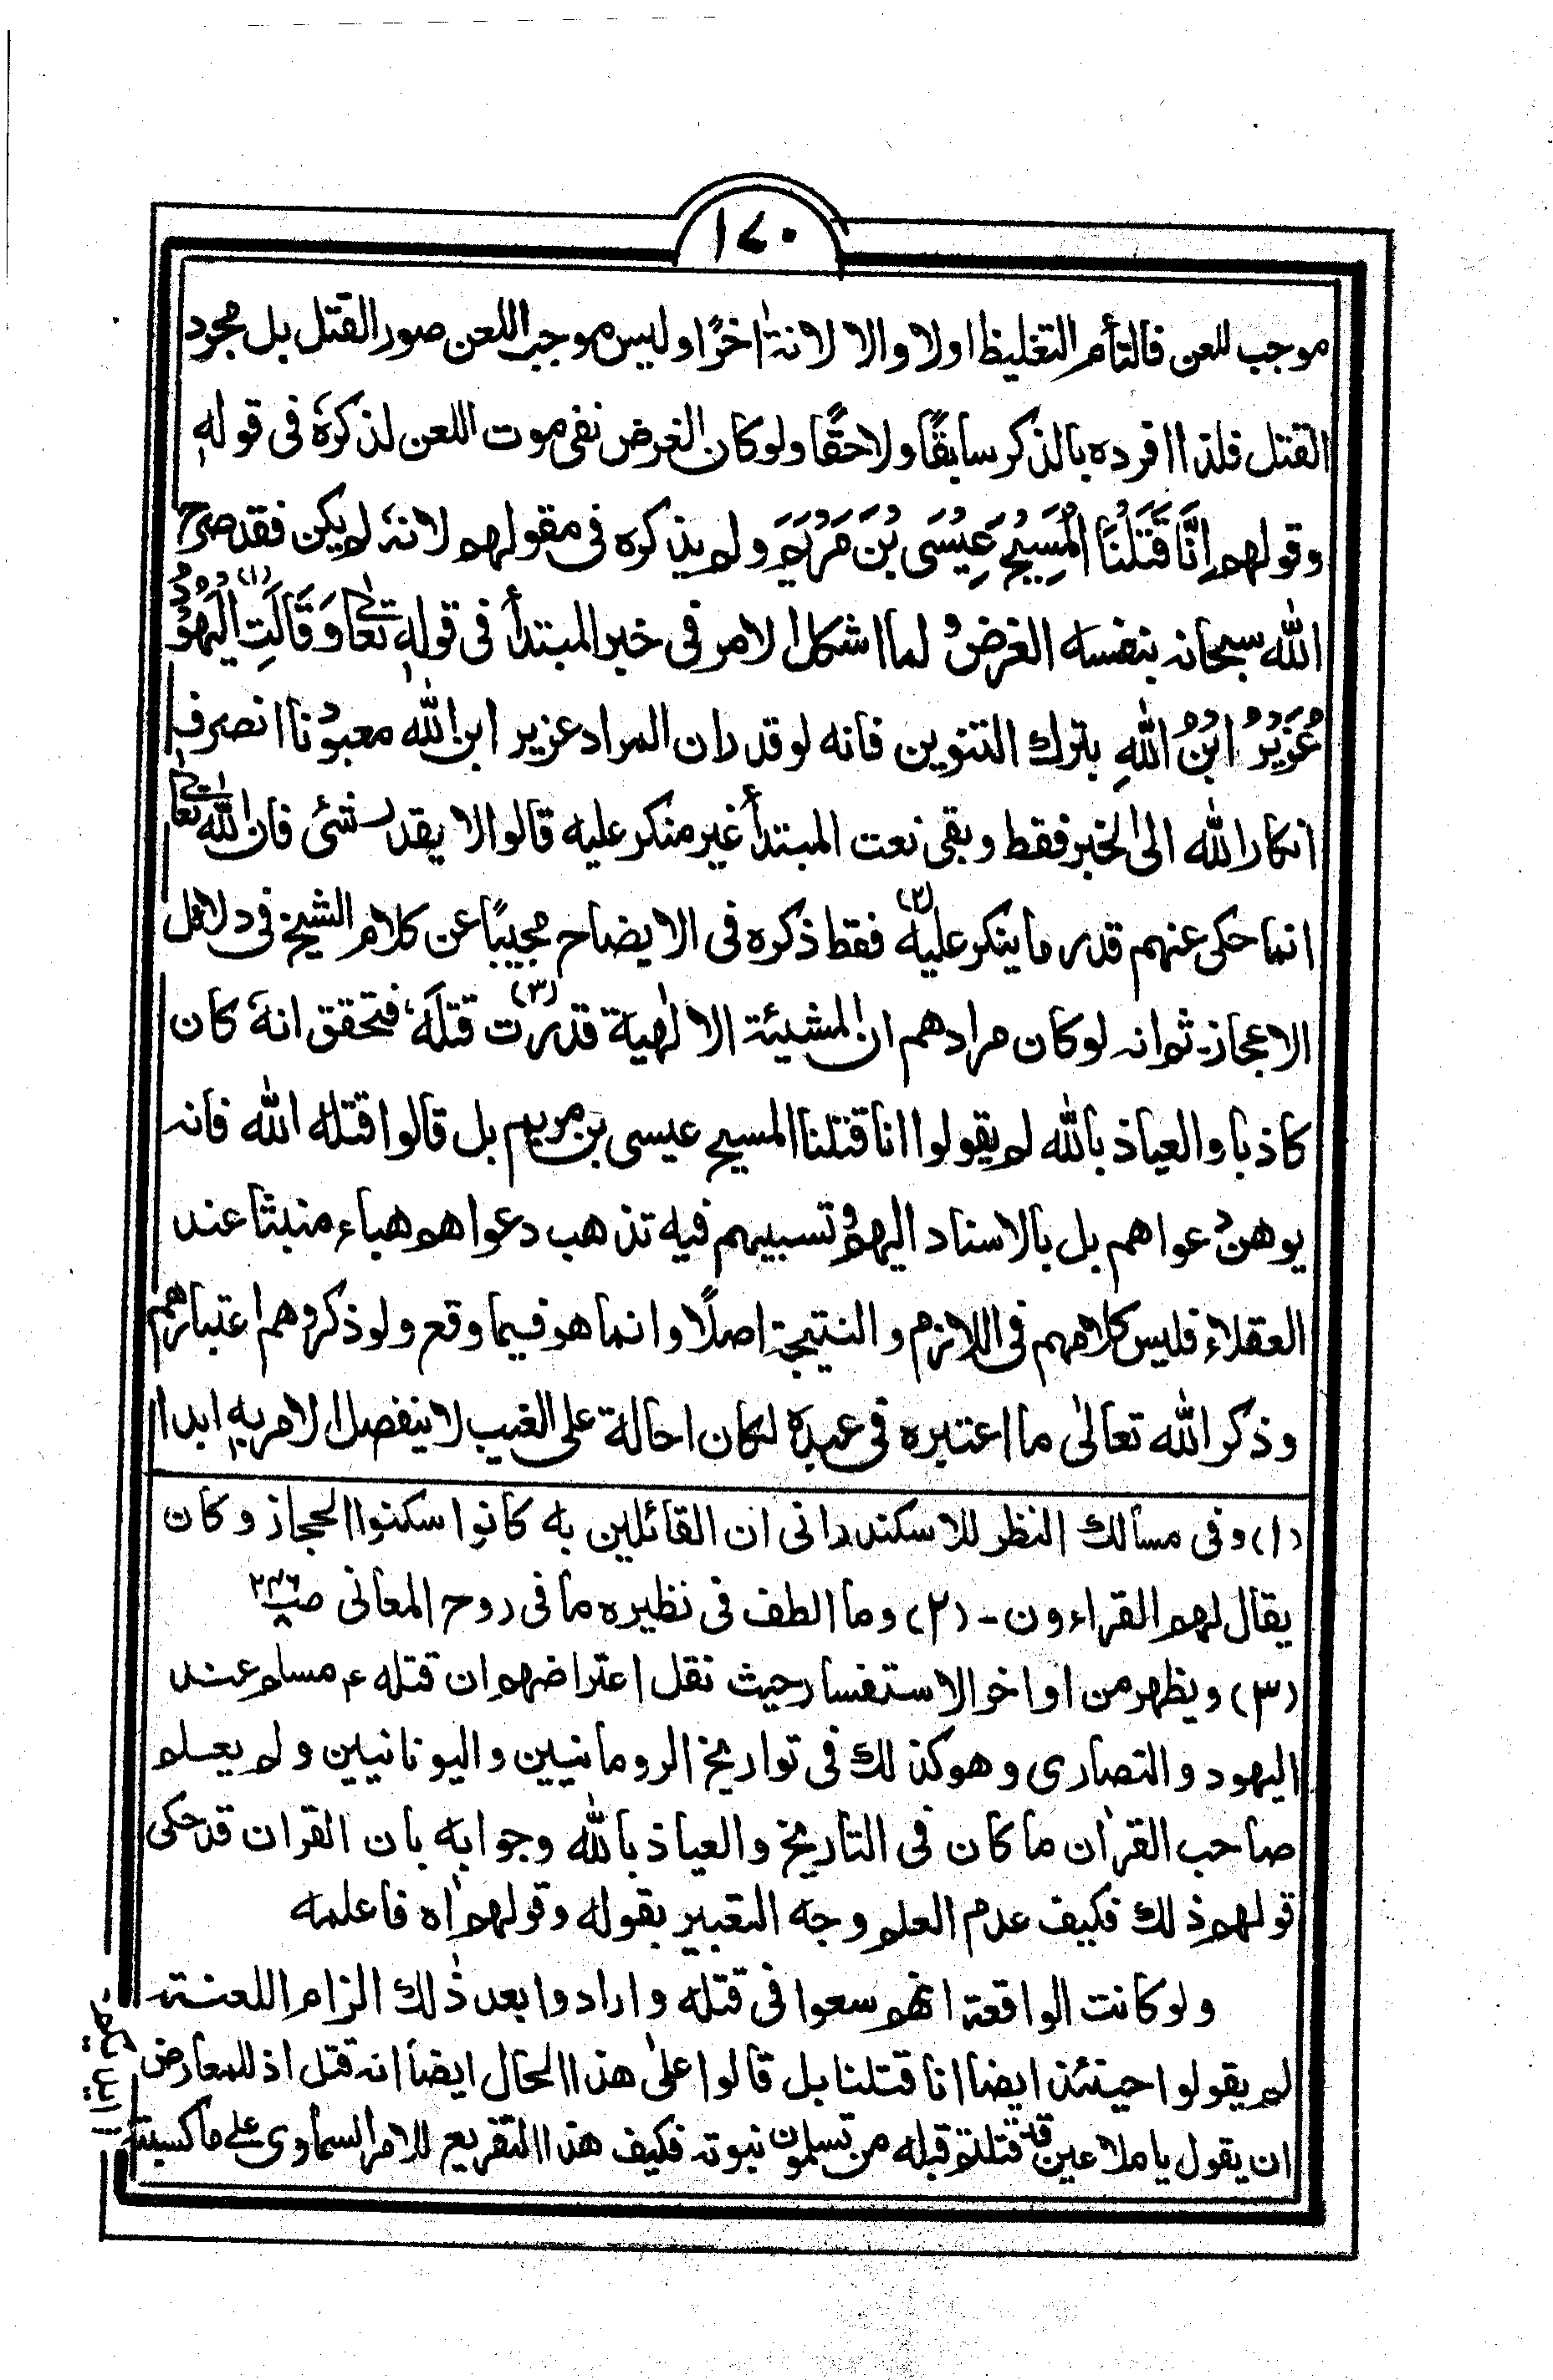 ١٧٠
موجب للعن فالتأم التغليظ اولا والا لانة اخرًا وليس موجب اللعن صور القتل بل مجرد
القتل فلذا افرده بالذكر سابقًا ولاحقًا ولو كان الغرض نفى موت اللعن لذكرهٗ فى قولهٖ
وقولهم اِنَّا قَتَلْنَا الْمَسِيْحَ عِيْسَى بْنَ مَرْيَمَ ولم يذكره فى مقولهم لانهٗ لم يكن فقد صرح
الله سبحانه بنفسه الغرض و لما اشكل الامر فى خبر المبتدأ فى قولهٖ تعالٰى وَقَالَتِ الْيَهُوْدُ (١)
عُزَيْرُ ابْنُ اللهِ بترك التنوين فانه لو قدر ان المراد عزير ابن الله معبودنا انصرف
انكار الله الى الخبر فقط وبقى نعت المبتدأ غير منكر عليه قالوا لا يقدر شئى فان الله تعالٰى
انما حكى عنهم قدر ما ينكر عليه (٢) فقط ذكره فى الايضاح مجيبًا عن كلام الشيخ فى دلائل
الاعجاز۔ ثم انه لو كان مرادهم ان المشيئة الالٰهية قدرت (٣) قتلهٗ، فتحقق انهٗ كان
كاذبا والعياذ بالله لم يقولوا انا قتلنا المسيح عيسى بن مريم بل قالوا قتله الله فانه
يوهن دعواهم بل بالاسناد اليهم و تسبيبهم فيه تذهب دعواهم هباء منبثا عند
العقلاء فليس كلامهم فى اللازم والنتيجة اصلًا وانما هو فيما وقع ولو ذكروهم اعتبارهم
وذكر الله تعالٰى ما اعتبره فى عبده لكان احالة على الغيب لا ينفصل الامر بهٖ ابدا
(١) وفى مسالك النظر للاسكندرانى ان القائلين به كانوا سكنوا الحجاز وكان
يقال لهم القراءون۔ (٢) وما الطف فى نظيره ما فى روح المعانى
(٣) ويظهر من اواخر الاستفسار حيث نقل اعتراضهم ان قتله ع مسلم عند
اليهود والنصارى وهو كذلك فى تواريخ الرومانيين واليونانيين ولم يعلم
صاحب القراٰن ما كان فى التاريخ والعياذ بالله وجوابه بان القران قد حكى
قولهم ذلك فكيف عدم العلم وجه التعبير بقوله وقولهم اٰه فاعلمه
ولو كانت الواقعة انهم سعوا فى قتله وارادوا بعد ذٰلك الزام اللعنة
لم يقولوا حينئذ ايضا انا قتلنا بل قالوا علٰى هذا الحال ايضا انه قتل اذ للمعارض
ان يقول يا ملاعين قد قتلتم قبله من تسلمون نبوته فكيف هذا التقريع للامر السماوى على ما كسبتم